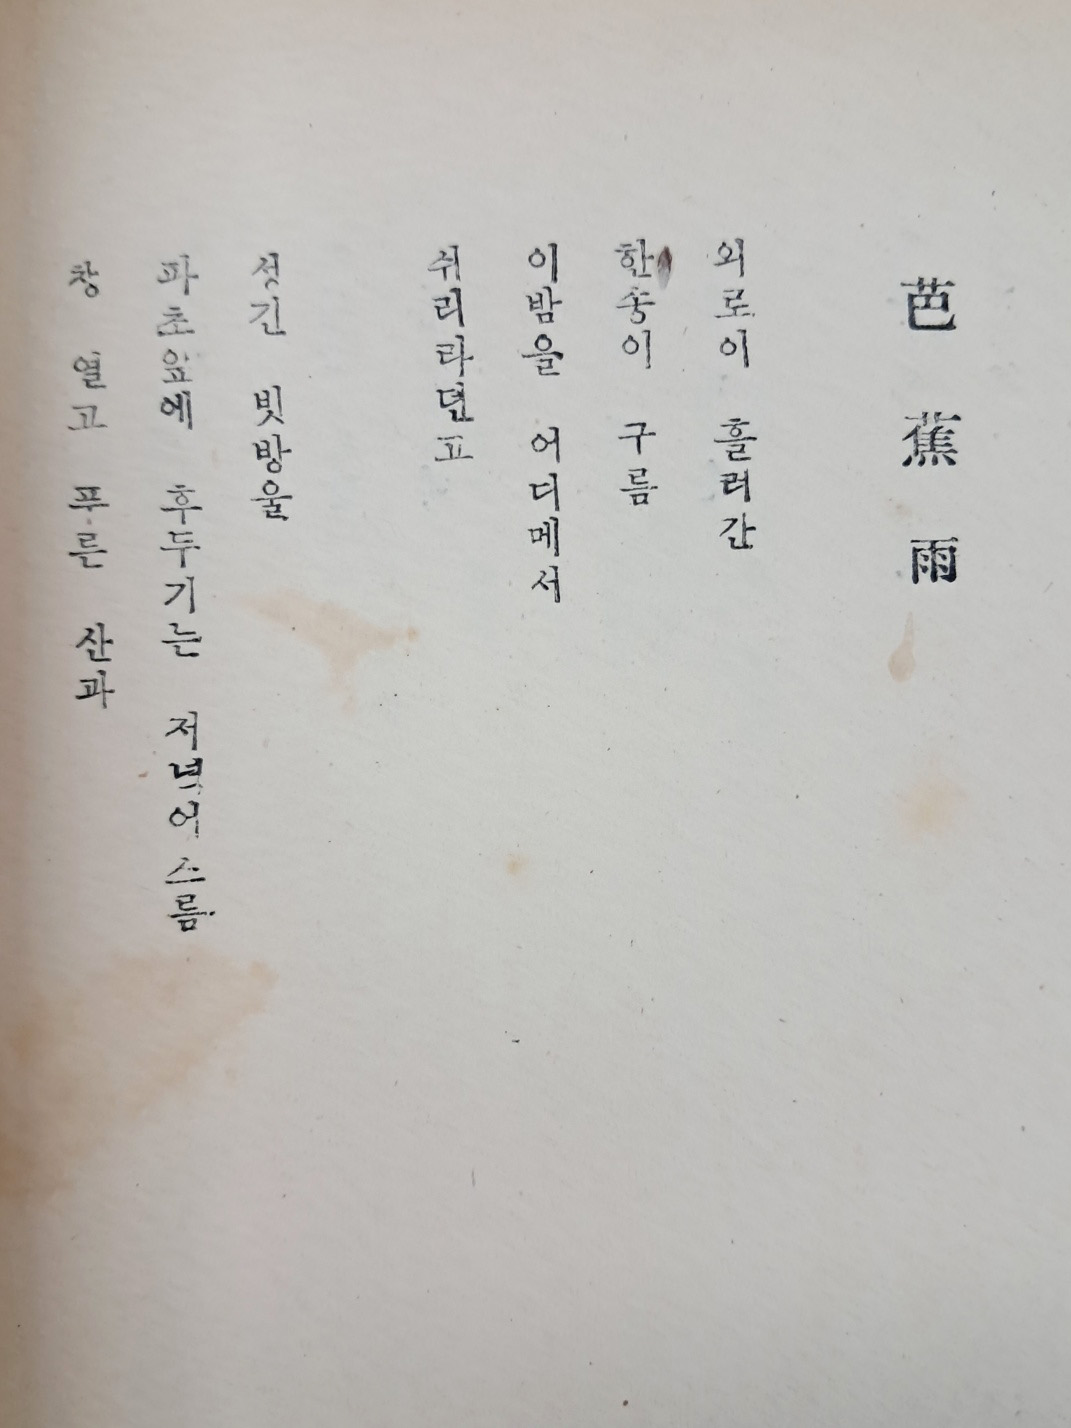 芭蕉雨
외로이 흘러간
한송이 구름
이밤을 어디메서
쉬리라던고
성긴 빗방울
파초잎에 후두기는 저녁어스름
창 열고 푸른 산과